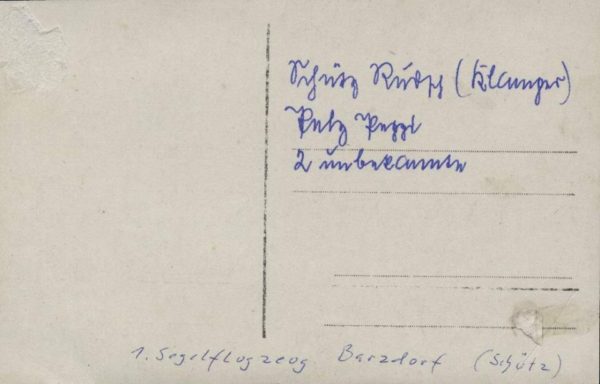 Schütz Rudsch (Klamper)
Putz Peppi
2 unbekannte
1. Segelflugzeug Barzdorf (Schütz)